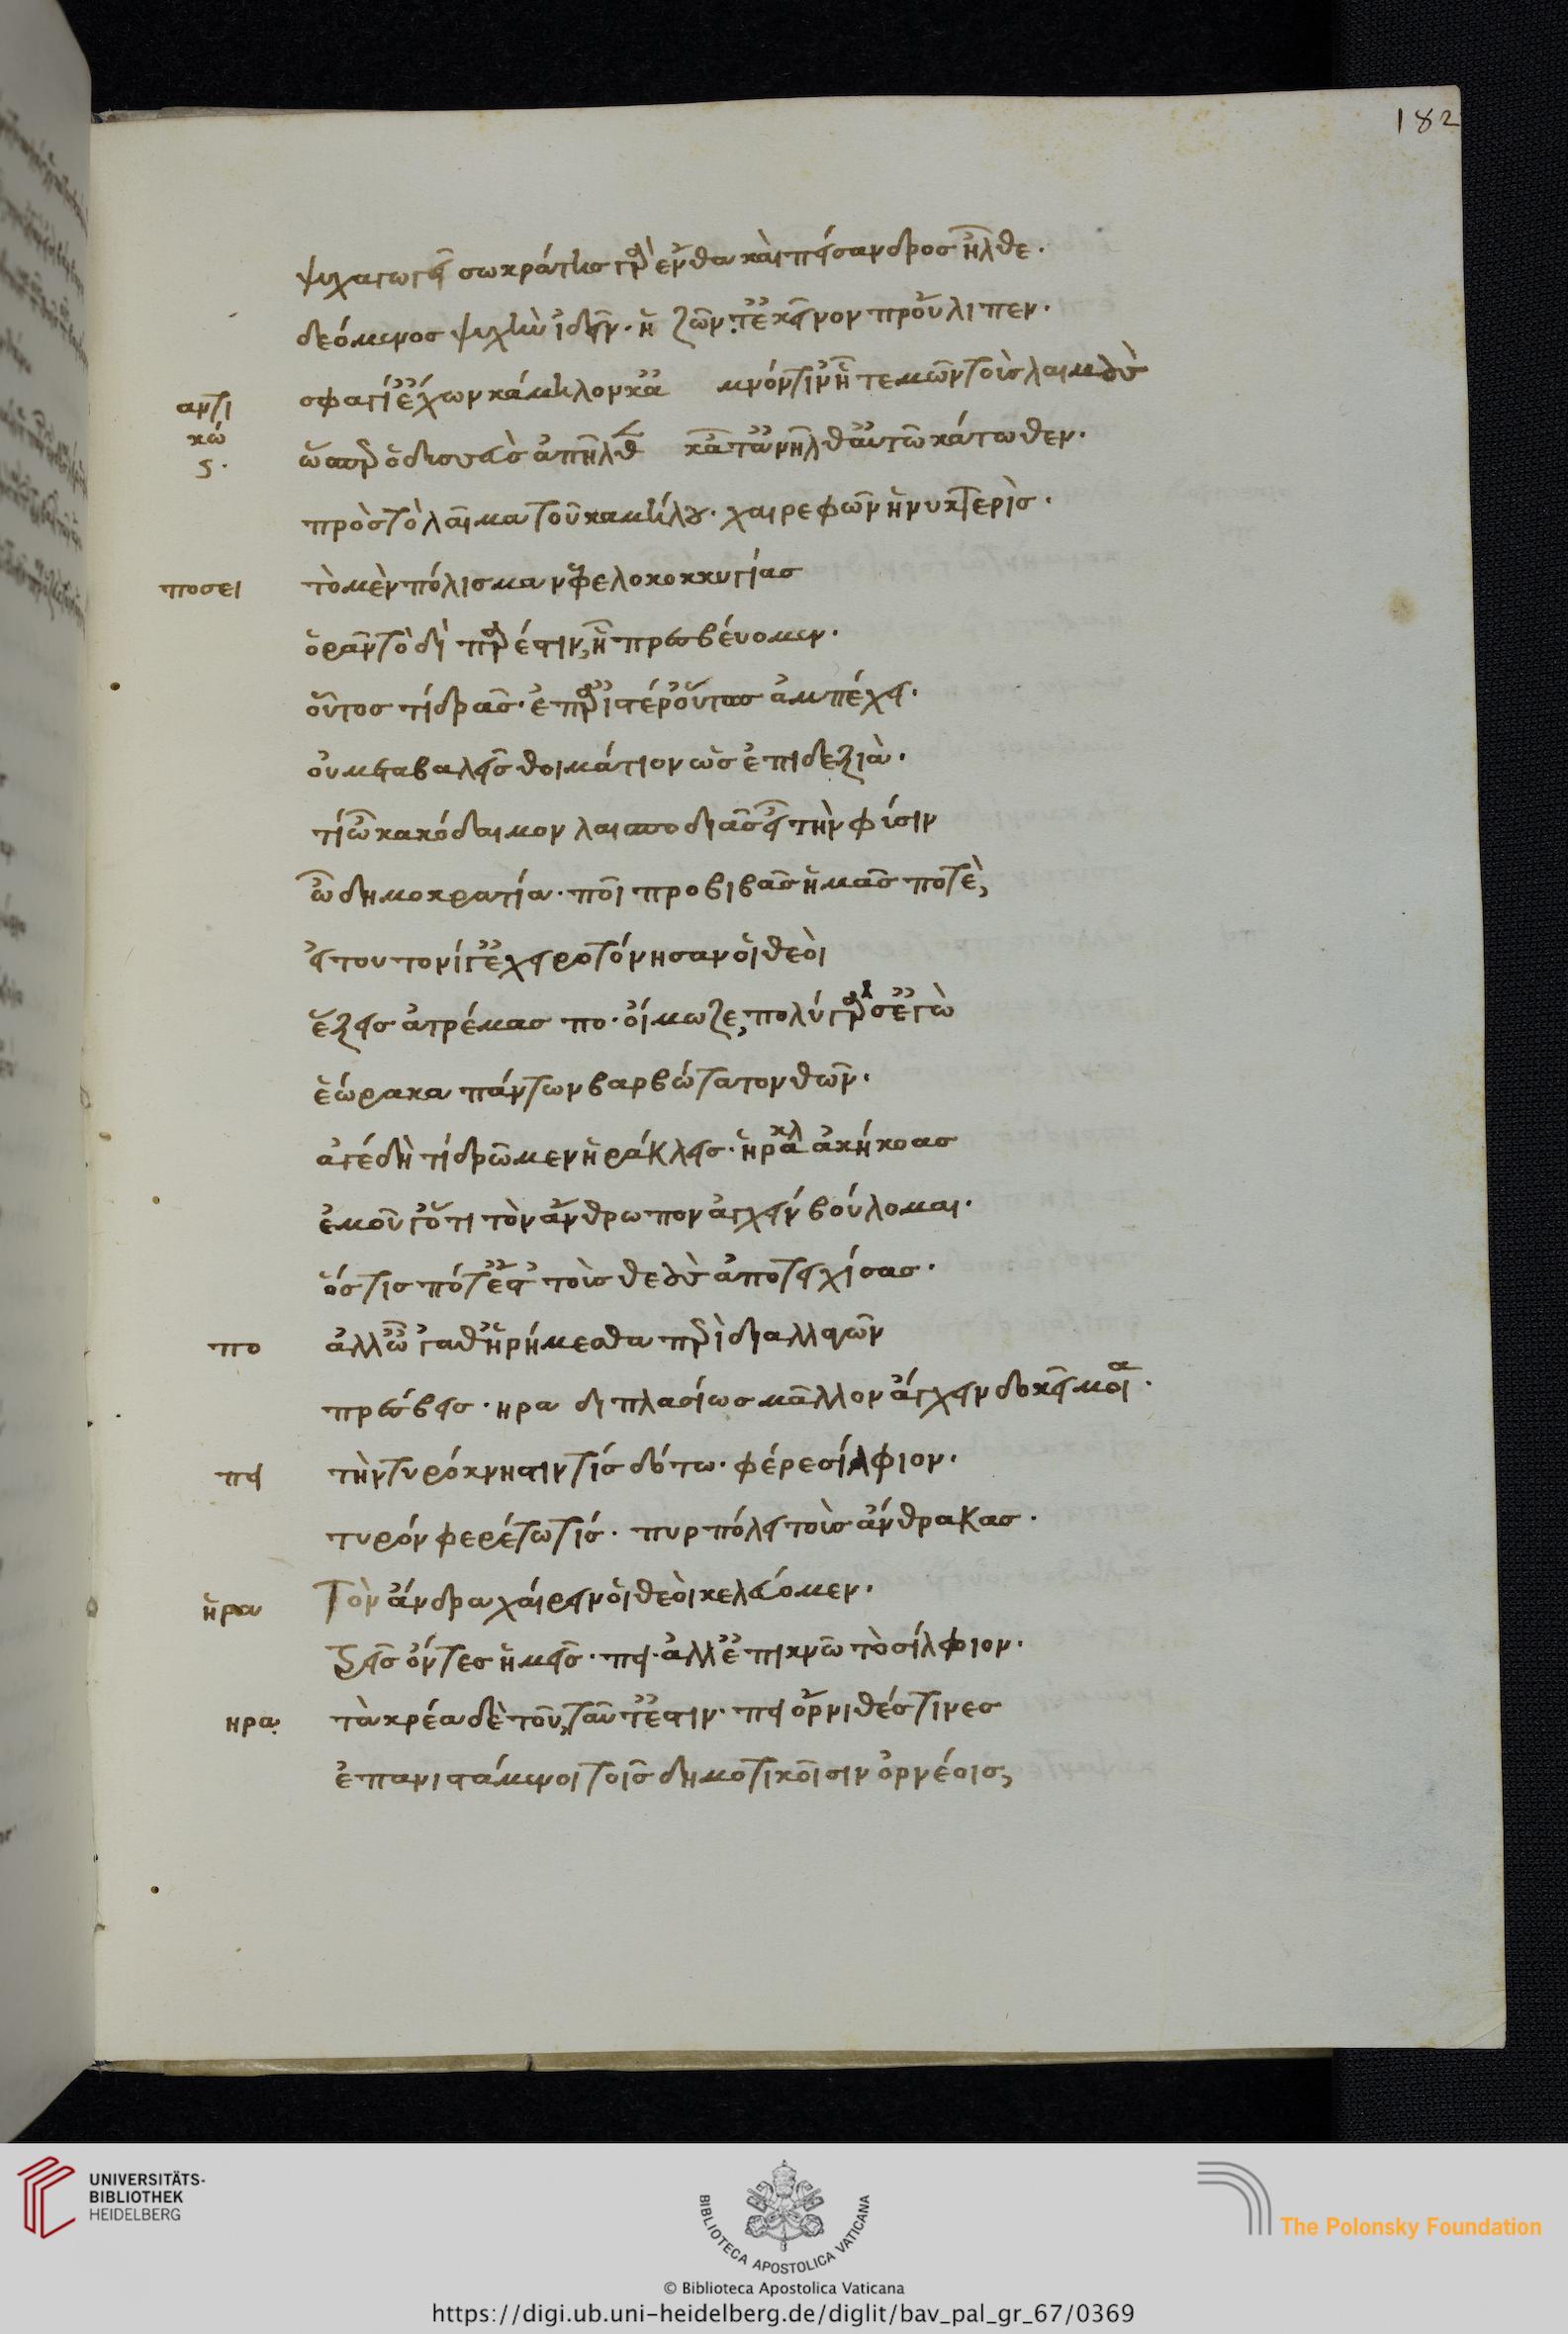 182
ψυχαγωγεῖ σωκράτης· γὰρ ἔνθα καὶ πείσανδρος ἦλθε.
δεόμενος ψυχὴν ἰδεῖν· ἣ ζῶντ' ἐκεῖνον προὔλιπεν.
αντι σφάγι' ἔχων κάμηλον κἀ μνόν τιν' ἧς τεμὼν τοὺς λαιμοὺς
κώ
ς. ὥσπερ ὁδυσσεὺς ἀπῆλθε κᾆτ' ἀνῆλθ' αὐτῶ κάτωθεν.
πρὸς τὸ λαῖμα τοῦ καμήλου. χαιρεφῶν ἡ νυκτερίς.
ποσει τὸ μὲν πόλισμα νεφελοκοκκυγίας
ὁρᾶν τὸ δὶ πάρεστιν, ἧ πρεσβεύομεν.
οὗτος τί δρᾶς· ἐπ' ἀριστέρ' οὕτως ἀμπέχει.
οὐ μεταβαλεῖς θοιμάτιον ὡς ἐπιδεξιά.
τί ὦ κακόδαιμον λαισποδίας εἶ τὴν φύσιν
ὦ δημοκρατία. ποῖ προβιβᾶς ἡμᾶς ποτὲ,
εἰ τουτονί γ' ἐχειροτόνησαν οἱ θεοὶ
ἕξεις ἀτρέμας πο. οἴμωζε, πολὺ γὰρ δή σ' ἐγὼ
ἑώρακα πάντων βαρβώτατον θεῶν.
ἄγε δὴ τί δρῶμεν ἡράκλεις. ἡρακλ ἀκήκοας
ἐμοῦ γ' ὅτι τὸν ἄνθρωπον ἄγχειν βούλομαι.
ὅστις πότ' ἔσθ' ὁ τοὺς θεοὺς ἀποτειχίσας.
πο ἀλλ' ὦ 'γάθ' ἡρήμεσθα περὶ διαλλαγῶν
πρέσβεις. ηρα διπλασίως μᾶλλον ἄγχειν δοκεῖ μοι.
πει τὴν τυρόκνηστίν τίς δότω. φέρε σίλφιον.
τυρόν φερέτω τίς. πυρπόλει τοὺς ἄνθρακας.
ἡρα Τὸν ἄνδρα χαίρειν οἱ θεοὶ κελεύομεν.
τρεῖς ὄντες ἡμεῖς. πει. ἀλλ' ἐπικνῶ τὸ σίλφιον.
ηρα. τὰ κρέα δὲ τοῦ, ταῦτ' ἐστιν. πει ὄρνιθές τινες
ἐπανιστάμενοι τοῖς δημοτικοῖσιν ὀρνέοις,
UNIVERSITÄTS-
BIBLIOTHEK
HEIDELBERG
BIBLIOTECA APOSTOLICA VATICANA
The Polonsky Foundation
© Biblioteca Apostolica Vaticana
https://digi.ub.uni-heidelberg.de/diglit/bav_pal_gr_67/0369